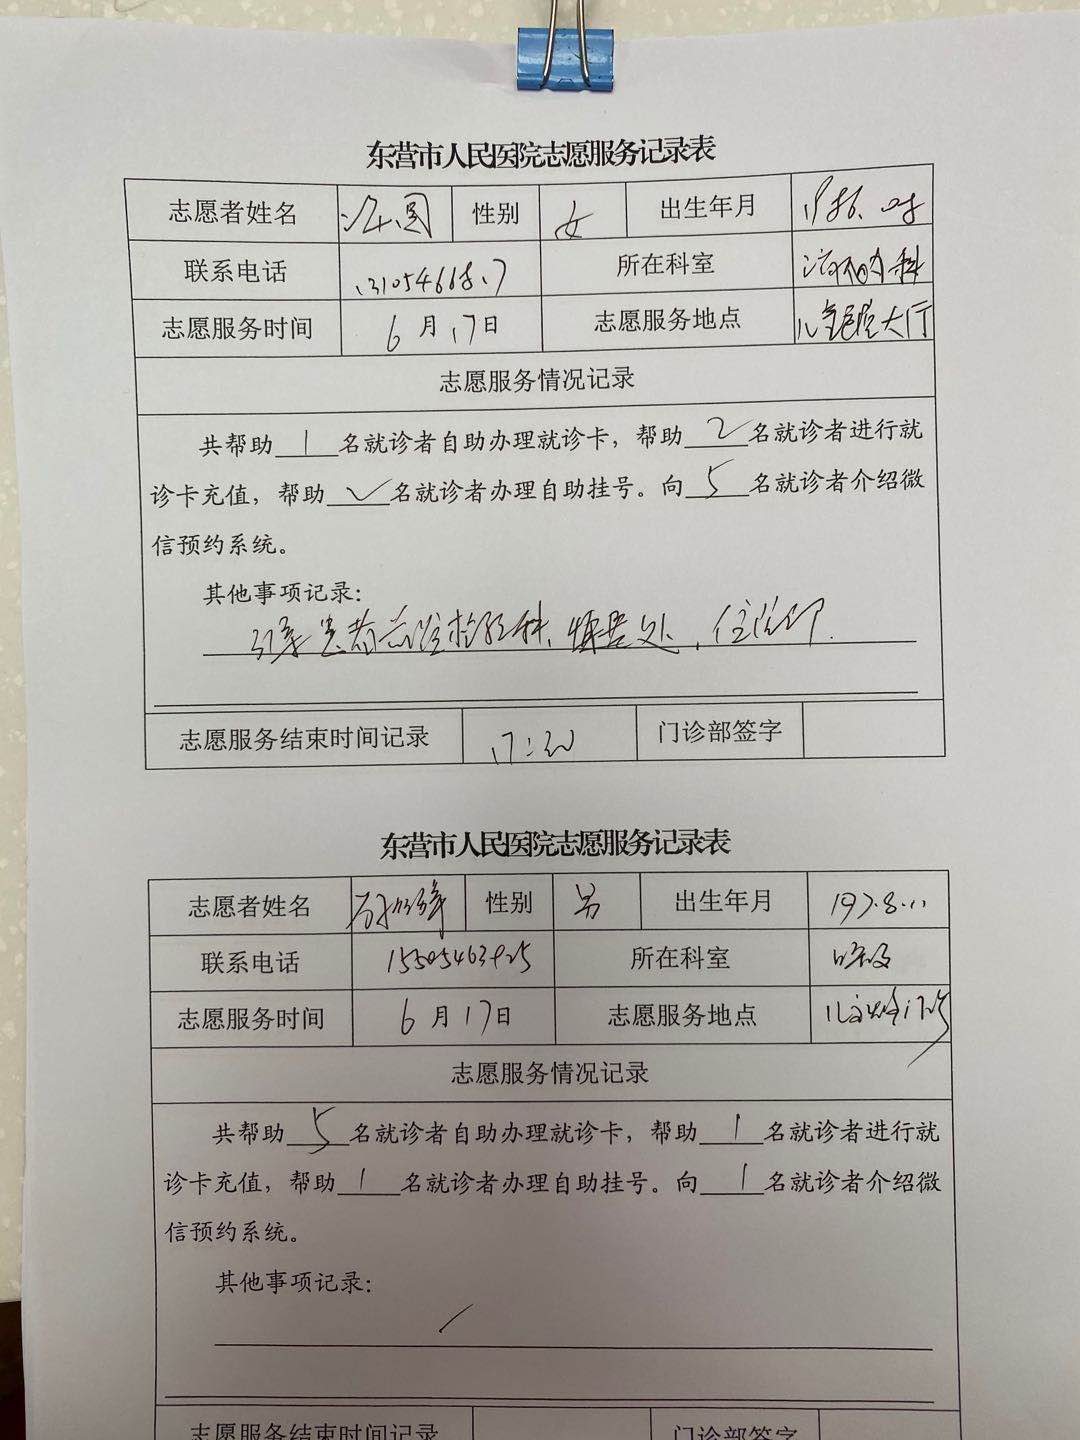 东营市人民医院志愿服务记录表
志愿者姓名 性别 女 出生年月
联系电话 所在科室 消化内科
志愿服务时间 6月17日 志愿服务地点 大厅
志愿服务情况记录
共帮助1名就诊者自助办理就诊卡，帮助2名就诊者进行就
诊卡充值，帮助2名就诊者办理自助挂号。向5名就诊者介绍微
信预约系统。
其他事项记录：
引导患者前往检验科、
志愿服务结束时间记录 17:30 门诊部签字
东营市人民医院志愿服务记录表
志愿者姓名 性别 男 出生年月
联系电话 所在科室 呼吸
志愿服务时间 6月17日 志愿服务地点
志愿服务情况记录
共帮助5名就诊者自助办理就诊卡，帮助1名就诊者进行就
诊卡充值，帮助1名就诊者办理自助挂号。向1名就诊者介绍微
信预约系统。
其他事项记录：
志愿服务结束时间记录 门诊部签字